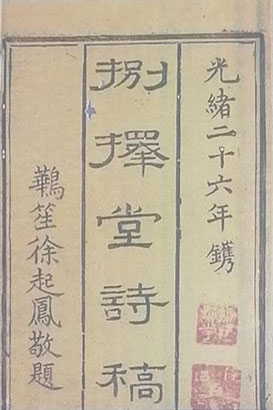 光緒二十六年鐫
堂詩稿
笙徐起鳳敬題